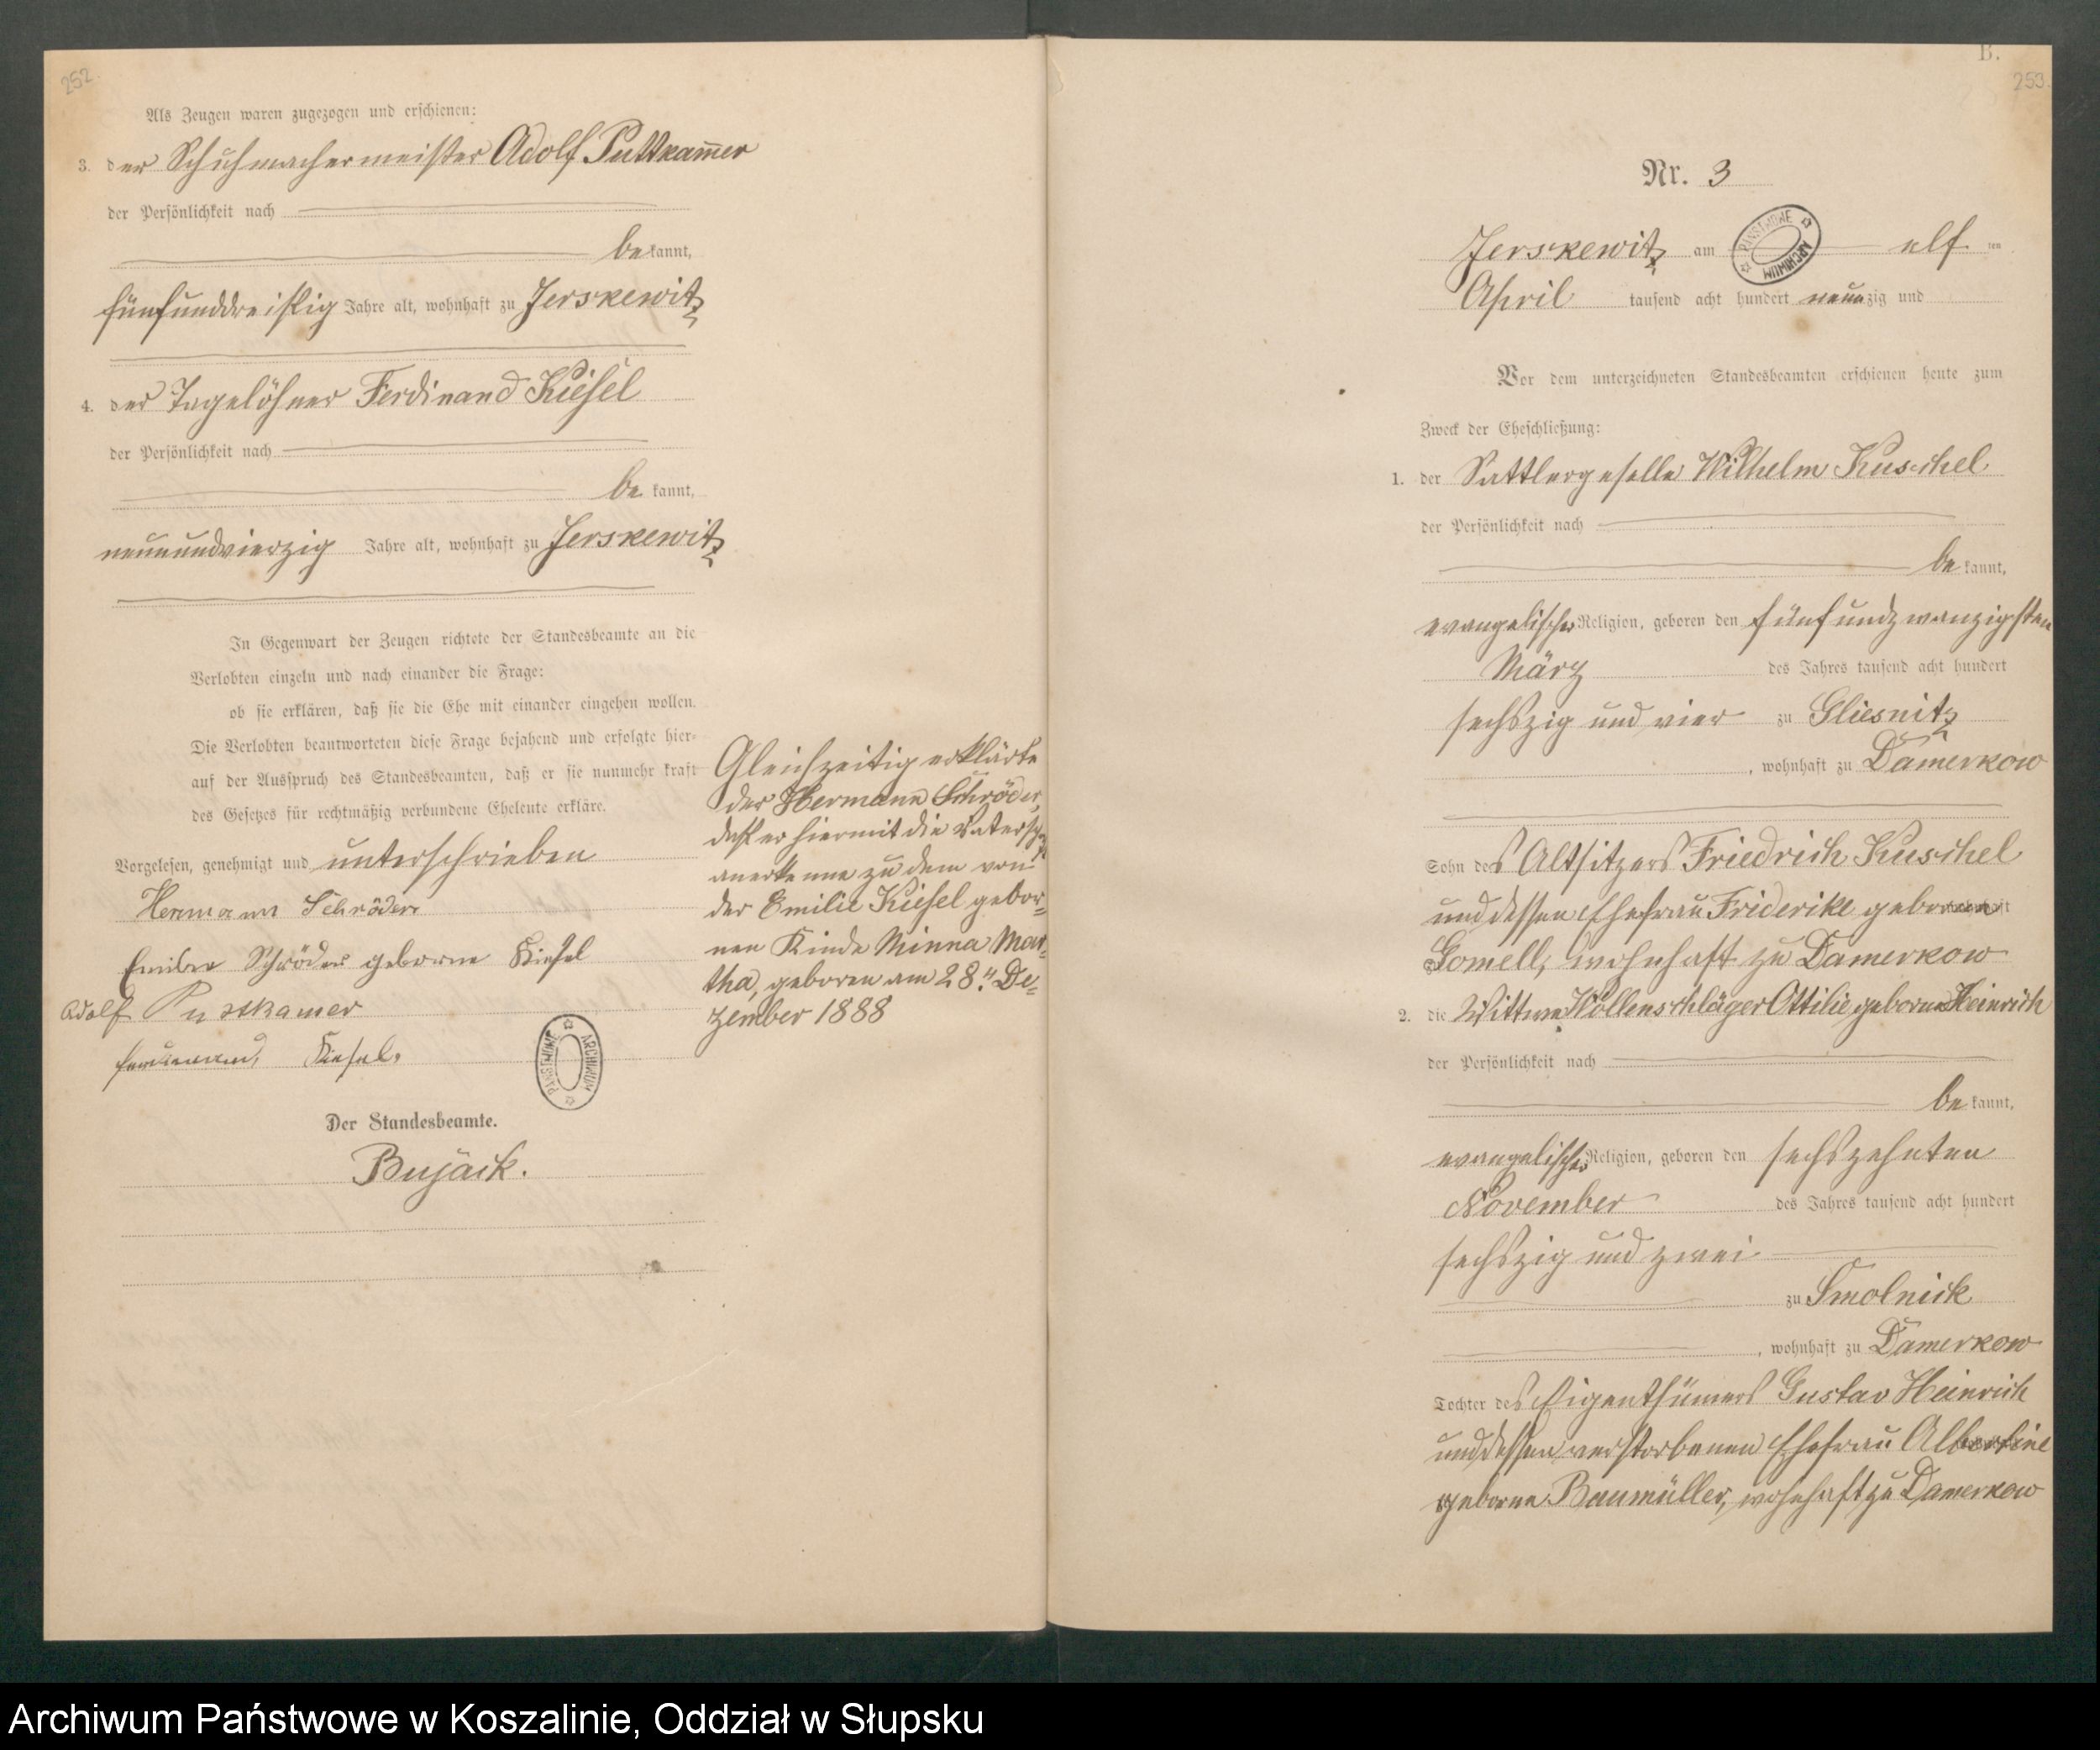 252.
Als Zeugen waren zugezogen und erschienen:
3. der Schuhmachermeister Adolf Puttkam̅er
der Persönlichkeit nach
bekannt,
fünfunddreißig Jahre alt, wohnhaft zu Jerskewitz
4. der Tagelöhner Ferdinand Kiesel
der Persönlichkeit nach
be kannt,
neunundvierzig Jahre alt, wohnhaft zu Jerskewitz
In Gegenwart der Zeugen richtete der Standesbeamte an die
Verlobten einzeln und nach einander die Frage:
ob sie erklären, daß sie die Ehe mit einander eingehen wollen.
Die Verlobten beantworteten diese Frage bejahend und erfolgte hier-
auf der Ausspruch des Standesbeamten, daß er sie nunmehr kraft
des Gesetzes für rechtmäßig verbundene Eheleute erkläre.
Vorgelesen, genehmigt und unterschrieben
Hermann Schröder
Emilie Schröder geborne Kiesel
Adolf Puttkamer
Ferdienand Kiesel.
PAŃSTWOWE ARCHIWUM
Der Standesbeamte.
Bujack.
Gleichzeitig erklärte
der Hermann Schröder,
daß er hiermit die Vaterschaft
anerkenne zu dem von
der Emilie Kiesel gebor=
nen Kinde Minna Mar=
tha, geboren am 28ten De=
zember 1888
B.
253.
Nr. 3
Jerskewitz am elf ten
PAŃSTWOWE ARCHIWUM
April tausend acht hundert neunzig und
Vor dem unterzeichneten Standesbeamten erschienen heute zum
Zweck der Eheschließung:
1. der Sattlergeselle Wilhelm Kuschel
der Persönlichkeit nach
be kannt,
evangelischer Religion, geboren den fünfundzwanzigsten
März des Jahres tausend acht hundert
sechszig und vier zu Gliesnitz
, wohnhaft zu Damerkow
Sohn des Altsitzers Friedrich Kuschel
und dessen Ehefrau Friderike geboren wohnhaft
Gomell, wohnhaft zu Damerkow
2. die Wittwe Höllenschläger Ottilie geborne Heinrich
der Persönlichkeit nach
be kannt,
evangelischer Religion, geboren den sechszehnten
November des Jahres tausend acht hundert
sechszig und zwei
zu Smolnick
, wohnhaft zu Damerkow
Tochter des Eigenthümers Gustav Heinrich
und dessen verstorbenen Ehefrau Albertine
geborne Baumüller, wohnhaft zu Damerkow
Archiwum Państwowe w Koszalinie, Oddział w Słupsku